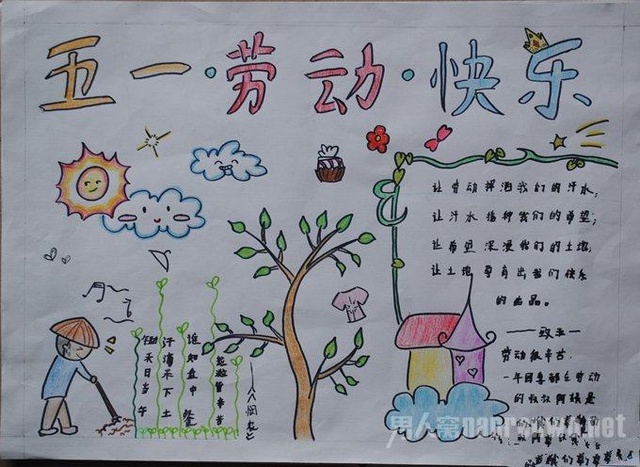 五一·劳动·快乐
让劳动挥洒我们的汗水,
让汗水播种我们的希望;
让希望深浸我们的土地,
让土地孕育出我们快乐
的出品。
——致五一
劳动很辛苦
一年四季都在劳动
的叔叔阿姨是
锄禾日当午
汗滴禾下土
谁知盘中餐
粒粒皆辛苦
——《悯农》
男人窝 nanrenwo.net